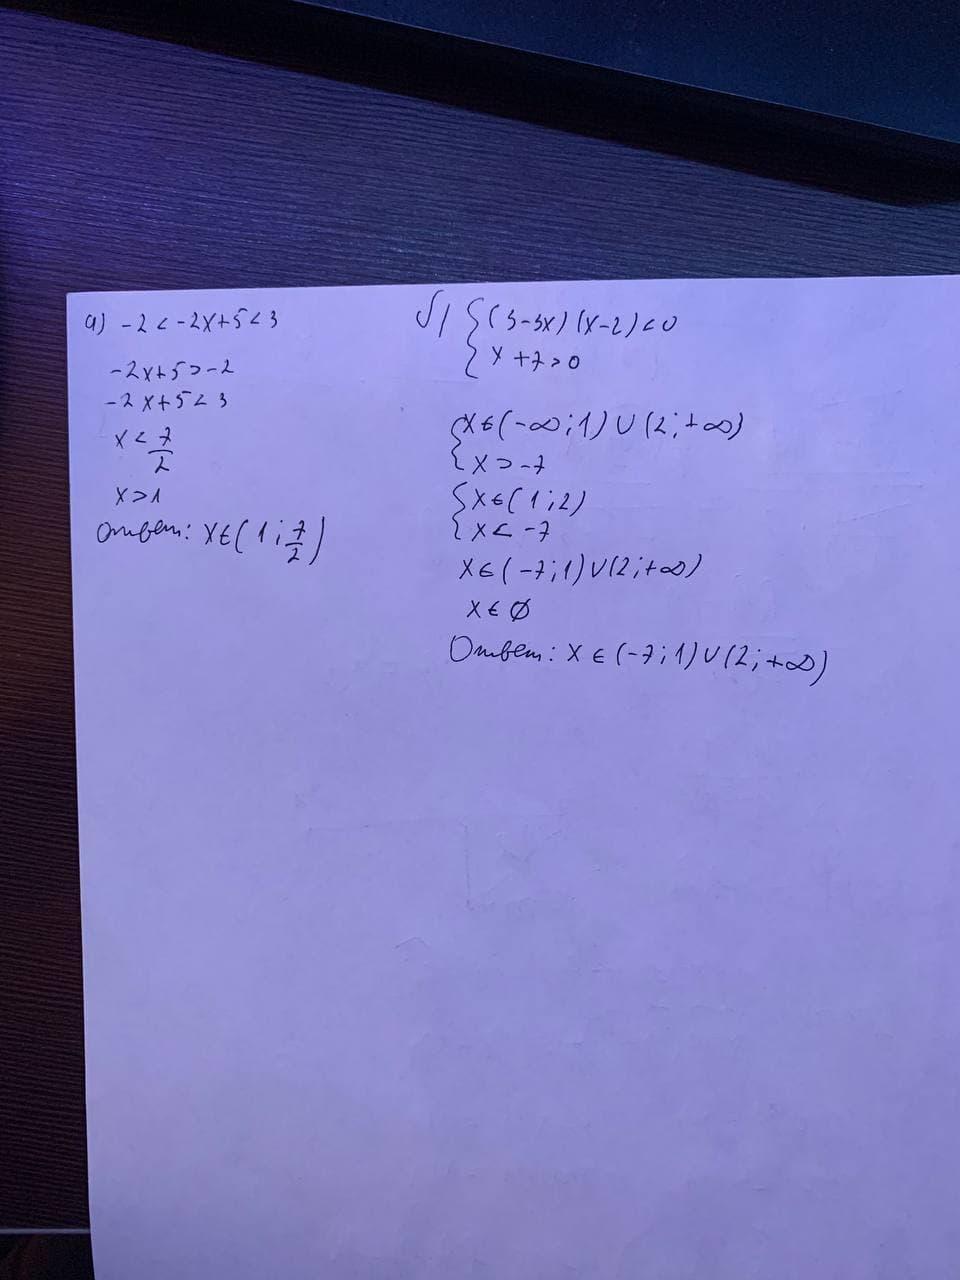 а) -2 < -2x+5 < 3
-2x+5 > -2
-2x+5 < 3
x < 7/2
x > 1
Ответ: x ∈ (1; 7/2)
б) { (3-3x)(x-2) < 0
{ x+7 > 0
{ x ∈ (-∞; 1) ∪ (2; +∞)
{ x > -7
{ x ∈ (1; 2)
{ x < -7
x ∈ (-7; 1) ∪ (2; +∞)
x ∈ ∅
Ответ: x ∈ (-7; 1) ∪ (2; +∞)